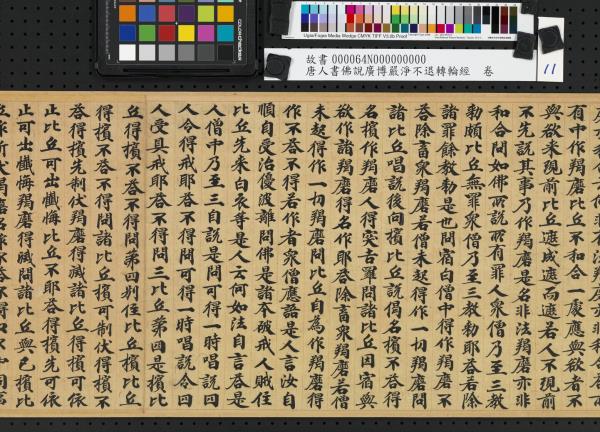 故書 000064N000000000
唐人書佛說廣博嚴淨不退轉輪經 卷
11
有中作羯磨比丘不和合一處應與欲者不
與欲來現前比丘遮成遮而遮若人不現前
不先說其事乃作羯磨是名非法羯磨亦非
和合問如佛所說所有罪人眾僧乃至三教
勑頗比丘無罪眾僧乃至三教勑耶荅若除
諸罪餘教勑是也問宿白僧中得作羯磨不
荅除畜眾羯磨若僧未起得作一切羯磨問
諸比丘唱說後向擯比丘說偈名擯不荅得
名擯作羯磨人得突吉羅問諸比丘因宿與
欲作諸羯磨得名作耶荅除畜眾羯磨若僧
未起得作一切羯磨問比丘自為作羯磨得
作不荅不得若作者眾僧應語是人言汝自
順自受治優波離問佛是諸本破戒人賊住
比丘先來白衣等是人云何如法自言荅是
人僧中乃至三自說是問可得一時唱說四
人令得戒耶荅不得問可得一時唱說令四
人受具戒耶荅不得問三比丘第四是擯比
丘得擯不荅不得問第四別住比丘擯比丘
得擯不荅不得問諸比丘擯可制伏得擯不
荅得擯先制伏羯磨得滅諸比丘擯先可依
止比丘可出懺悔比丘不耶荅得擯先可依
止可出懺悔羯磨得滅問諸比丘與色擯比